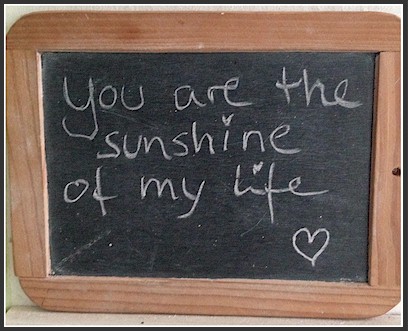 You are the
sunshine
of my life